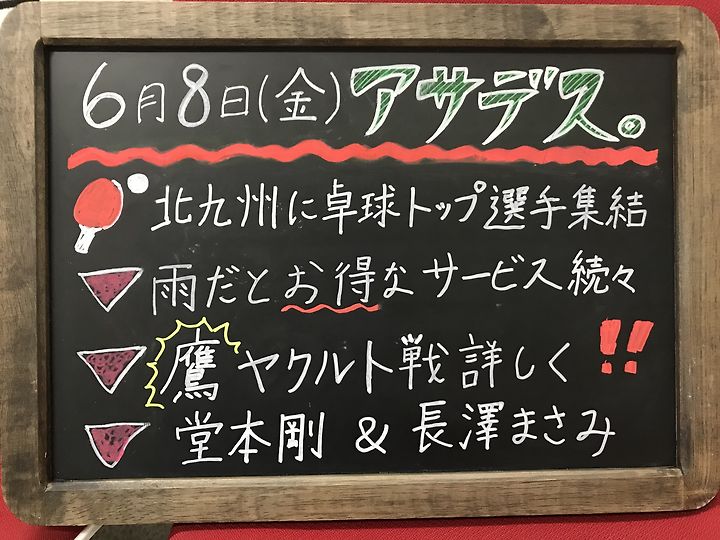 6月8日(金)アサデス。
北九州に卓球トップ選手集結
雨だとお得なサービス続々
鷹ヤクルト戦詳しく!!
堂本剛 & 長澤まさみ